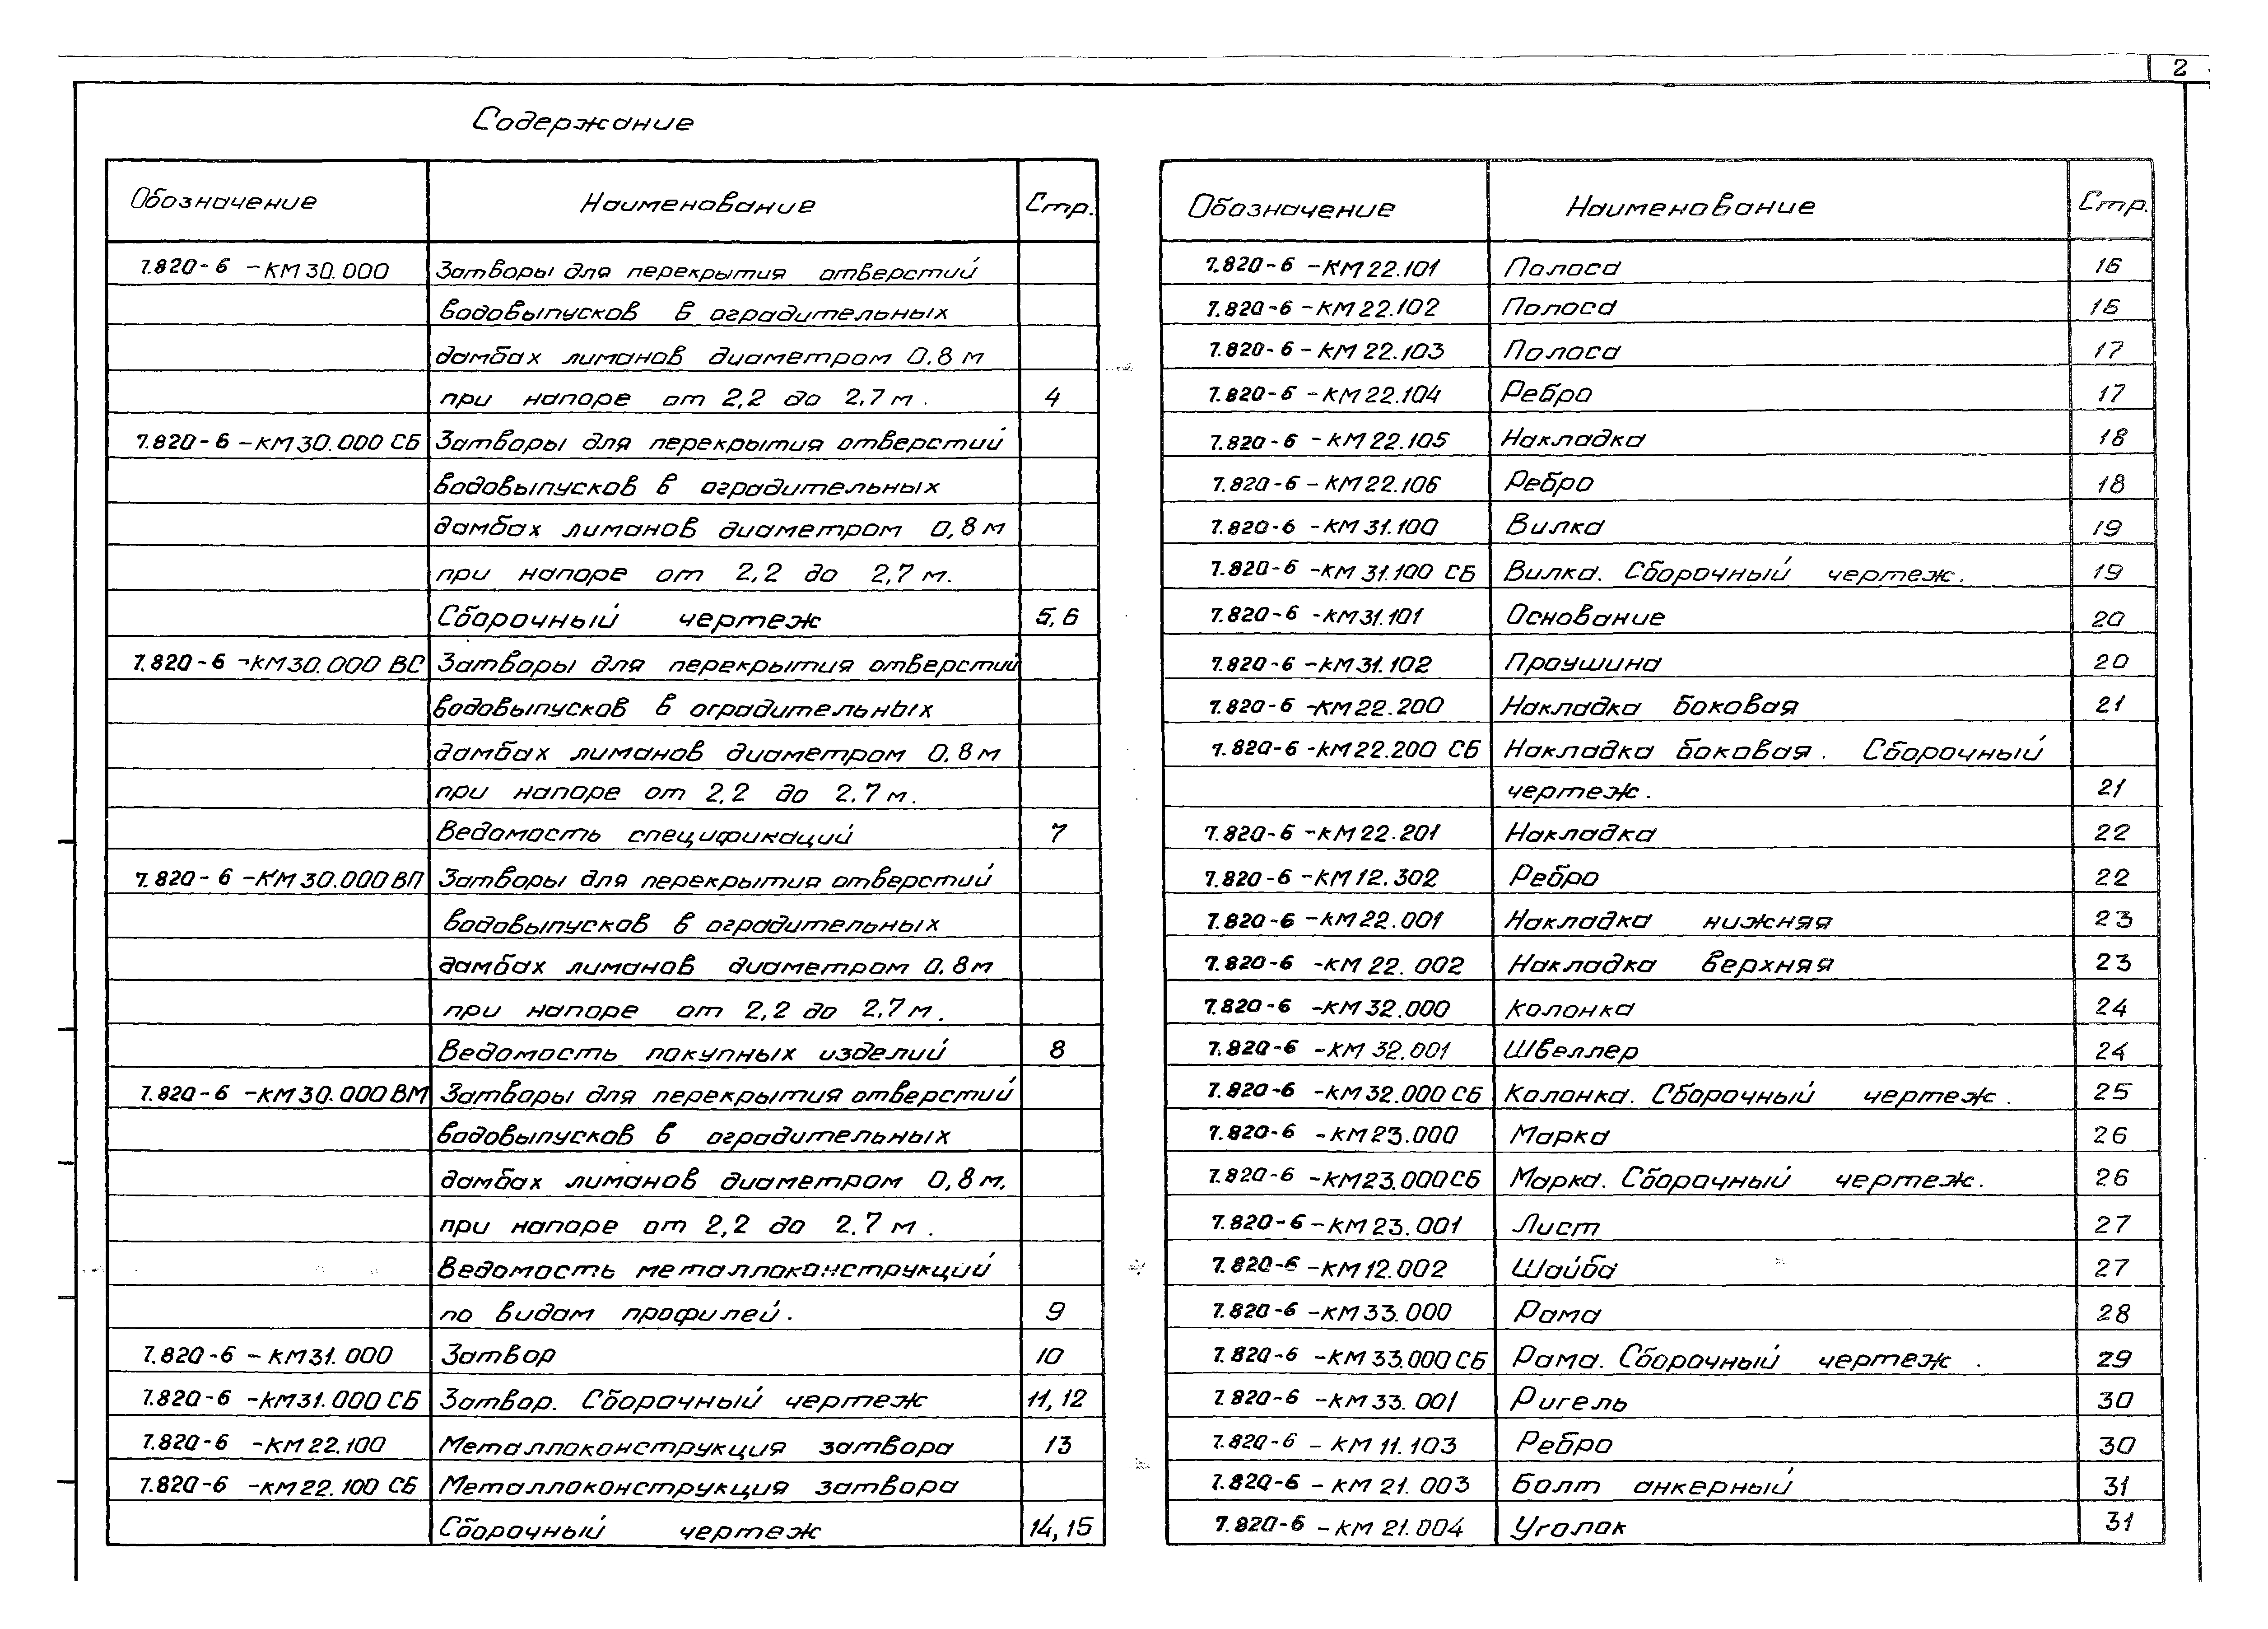 2
Содержание
Обозначение Наименование Стр.
7.820-6 -КМ30.000 Затворы для перекрытия отверстий
водовыпусков в оградительных
дамбах лиманов диаметром 0.8 м
при напоре от 2,2 до 2,7 м. 4
7.820-6 -КМ30.000 СБ Затворы для перекрытия отверстий
водовыпусков в оградительных
дамбах лиманов диаметром 0,8 м
при напоре от 2,2 до 2,7 м.
Сборочный чертеж 5,6
7.820-6 -КМ30.000 ВС Затворы для перекрытия отверстий
водовыпусков в оградительных
дамбах лиманов диаметром 0.8 м
при напоре от 2,2 до 2.7 м.
Ведомость спецификаций 7
7.820-6 -КМ30.000 ВП Затворы для перекрытия отверстий
водовыпусков в оградительных
дамбах лиманов диаметром 0.8 м
при напоре от 2,2 до 2,7 м.
Ведомость покупных изделий 8
7.820-6 -КМ30.000 ВМ Затворы для перекрытия отверстий
водовыпусков в оградительных
дамбах лиманов диаметром 0,8 м.
при напоре от 2,2 до 2.7 м.
Ведомость металлоконструкций
по видам профилей. 9
7.820-6 - КМ31.000 Затвор 10
7.820-6 -КМ31.000 СБ Затвор. Сборочный чертеж 11,12
7.820-6 -КМ22.100 Металлоконструкция затвора 13
7.820-6 -КМ22.100 СБ Металлоконструкция затвора
Сборочный чертеж 14,15
Обозначение Наименование Стр.
7.820-6 -КМ22.101 Полоса 16
7.820-6 -КМ22.102 Полоса 16
7.820-6 - КМ22.103 Полоса 17
7.820-6 - КМ22.104 Ребро 17
7.820-6 -КМ22.105 Накладка 18
7.820-6 - КМ22.106 Ребро 18
7.820-6 -КМ31.100 Вилка 19
7.820-6 -КМ31.100 СБ Вилка. Сборочный чертеж. 19
7.820-6 -КМ31.101 Основание 20
7.820-6 -КМ31.102 Проушина 20
7.820-6 -КМ22.200 Накладка боковая 21
7.820-6 -КМ22.200 СБ Накладка боковая. Сборочный
чертеж. 21
7.820-6 -КМ22.201 Накладка 22
7.820-6 -КМ12.302 Ребро 22
7.820-6 -КМ22.001 Накладка нижняя 23
7.820-6 -КМ22.002 Накладка верхняя 23
7.820-6 -КМ32.000 Колонка 24
7.820-6 -КМ32.001 Швеллер 24
7.820-6 -КМ32.000 СБ Колонка. Сборочный чертеж. 25
7.820-6 -КМ23.000 Марка 26
7.820-6 -КМ23.000СБ Марка. Сборочный чертеж. 26
7.820-6 -КМ23.001 Лист 27
7.820-6 -КМ12.002 Шайба 27
7.820-6 -КМ33.000 Рама 28
7.820-6 -КМ33.000 СБ Рама. Сборочный чертеж. 29
7.820-6 -КМ33.001 Ригель 30
7.820-6 - КМ11.103 Ребро 30
7.820-6 - КМ21.003 Болт анкерный 31
7.820-6 - КМ21.004 Уголок 31